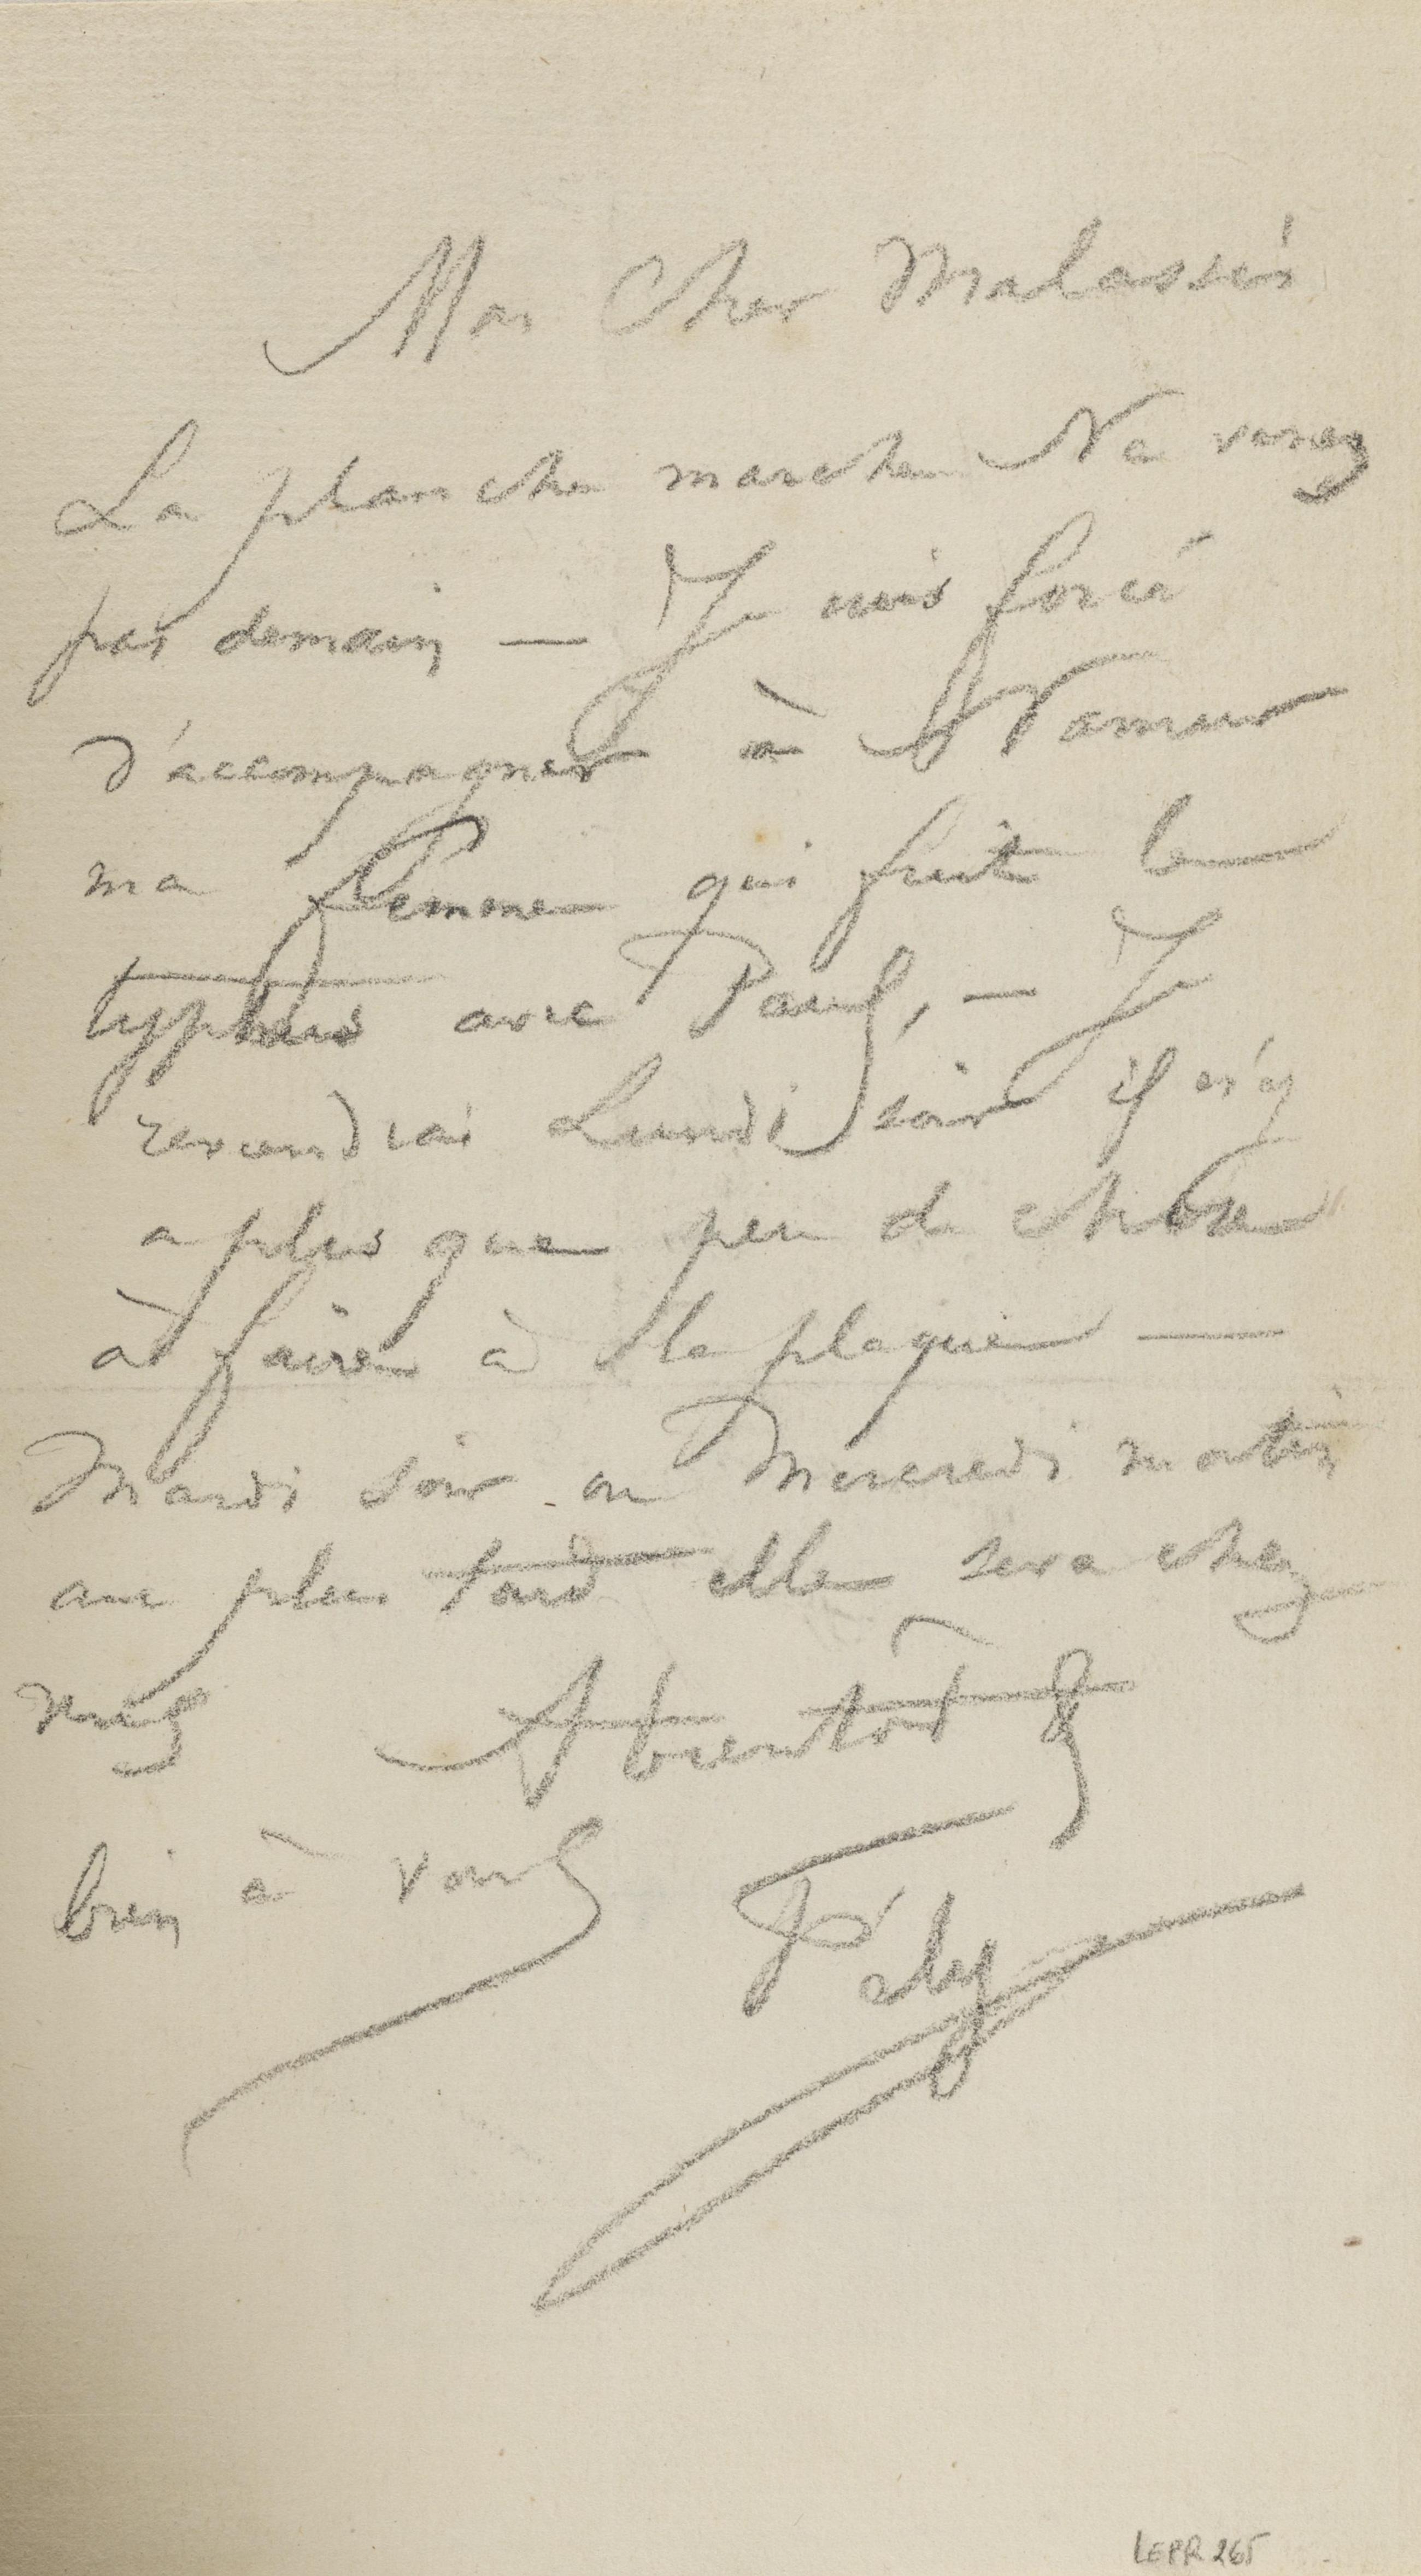 Mon Cher Malassis
La planche marche Ne venez
pas demain — Je suis forcé
d'accompagner à Namur
ma femme qui fuit le
typhus avec Paul, — Je
reviendrai Lundi soir il n'y
a plus que peu de chose
à faire à la plaque —
Mardi soir ou Mercredi matin
au plus tard elle sera chez
vous A bientôt &
bien à vous Fély
LEPR 265